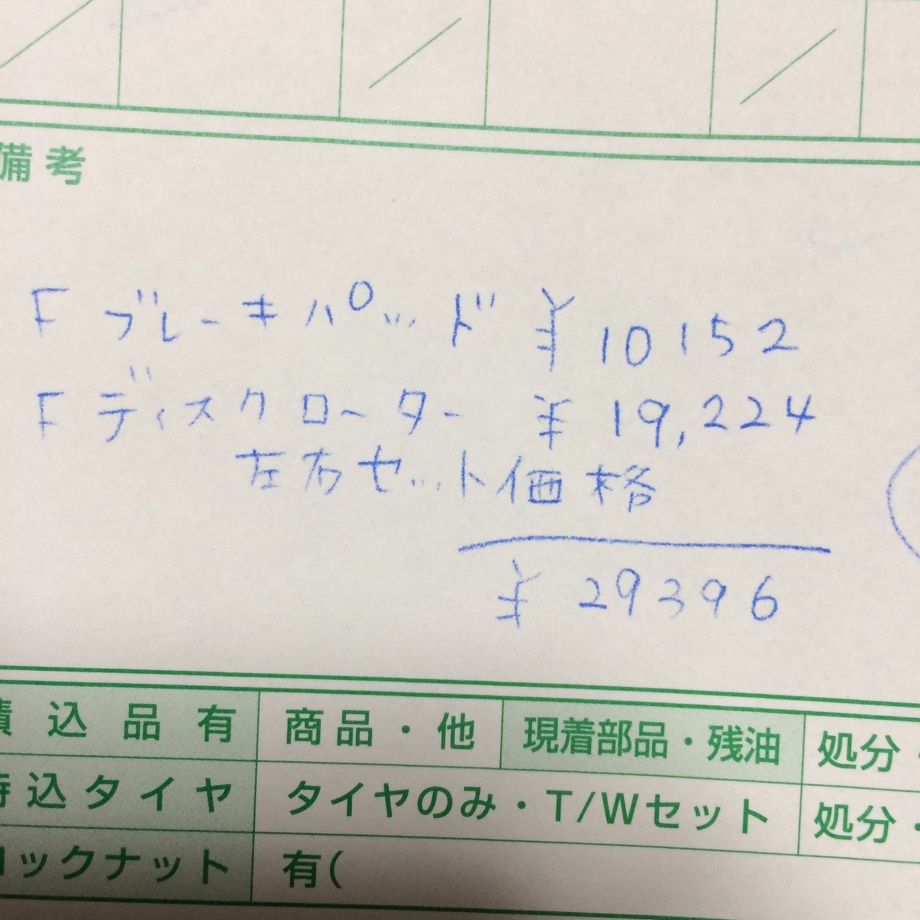 備考
F ブレーキパッド ¥10152
F ディスクローター ¥19,224
左右セット価格
¥29396
積込品有 商品・他 現着部品・残油 処分・
持込タイヤ タイヤのみ・T/Wセット 処分・
ロックナット 有(